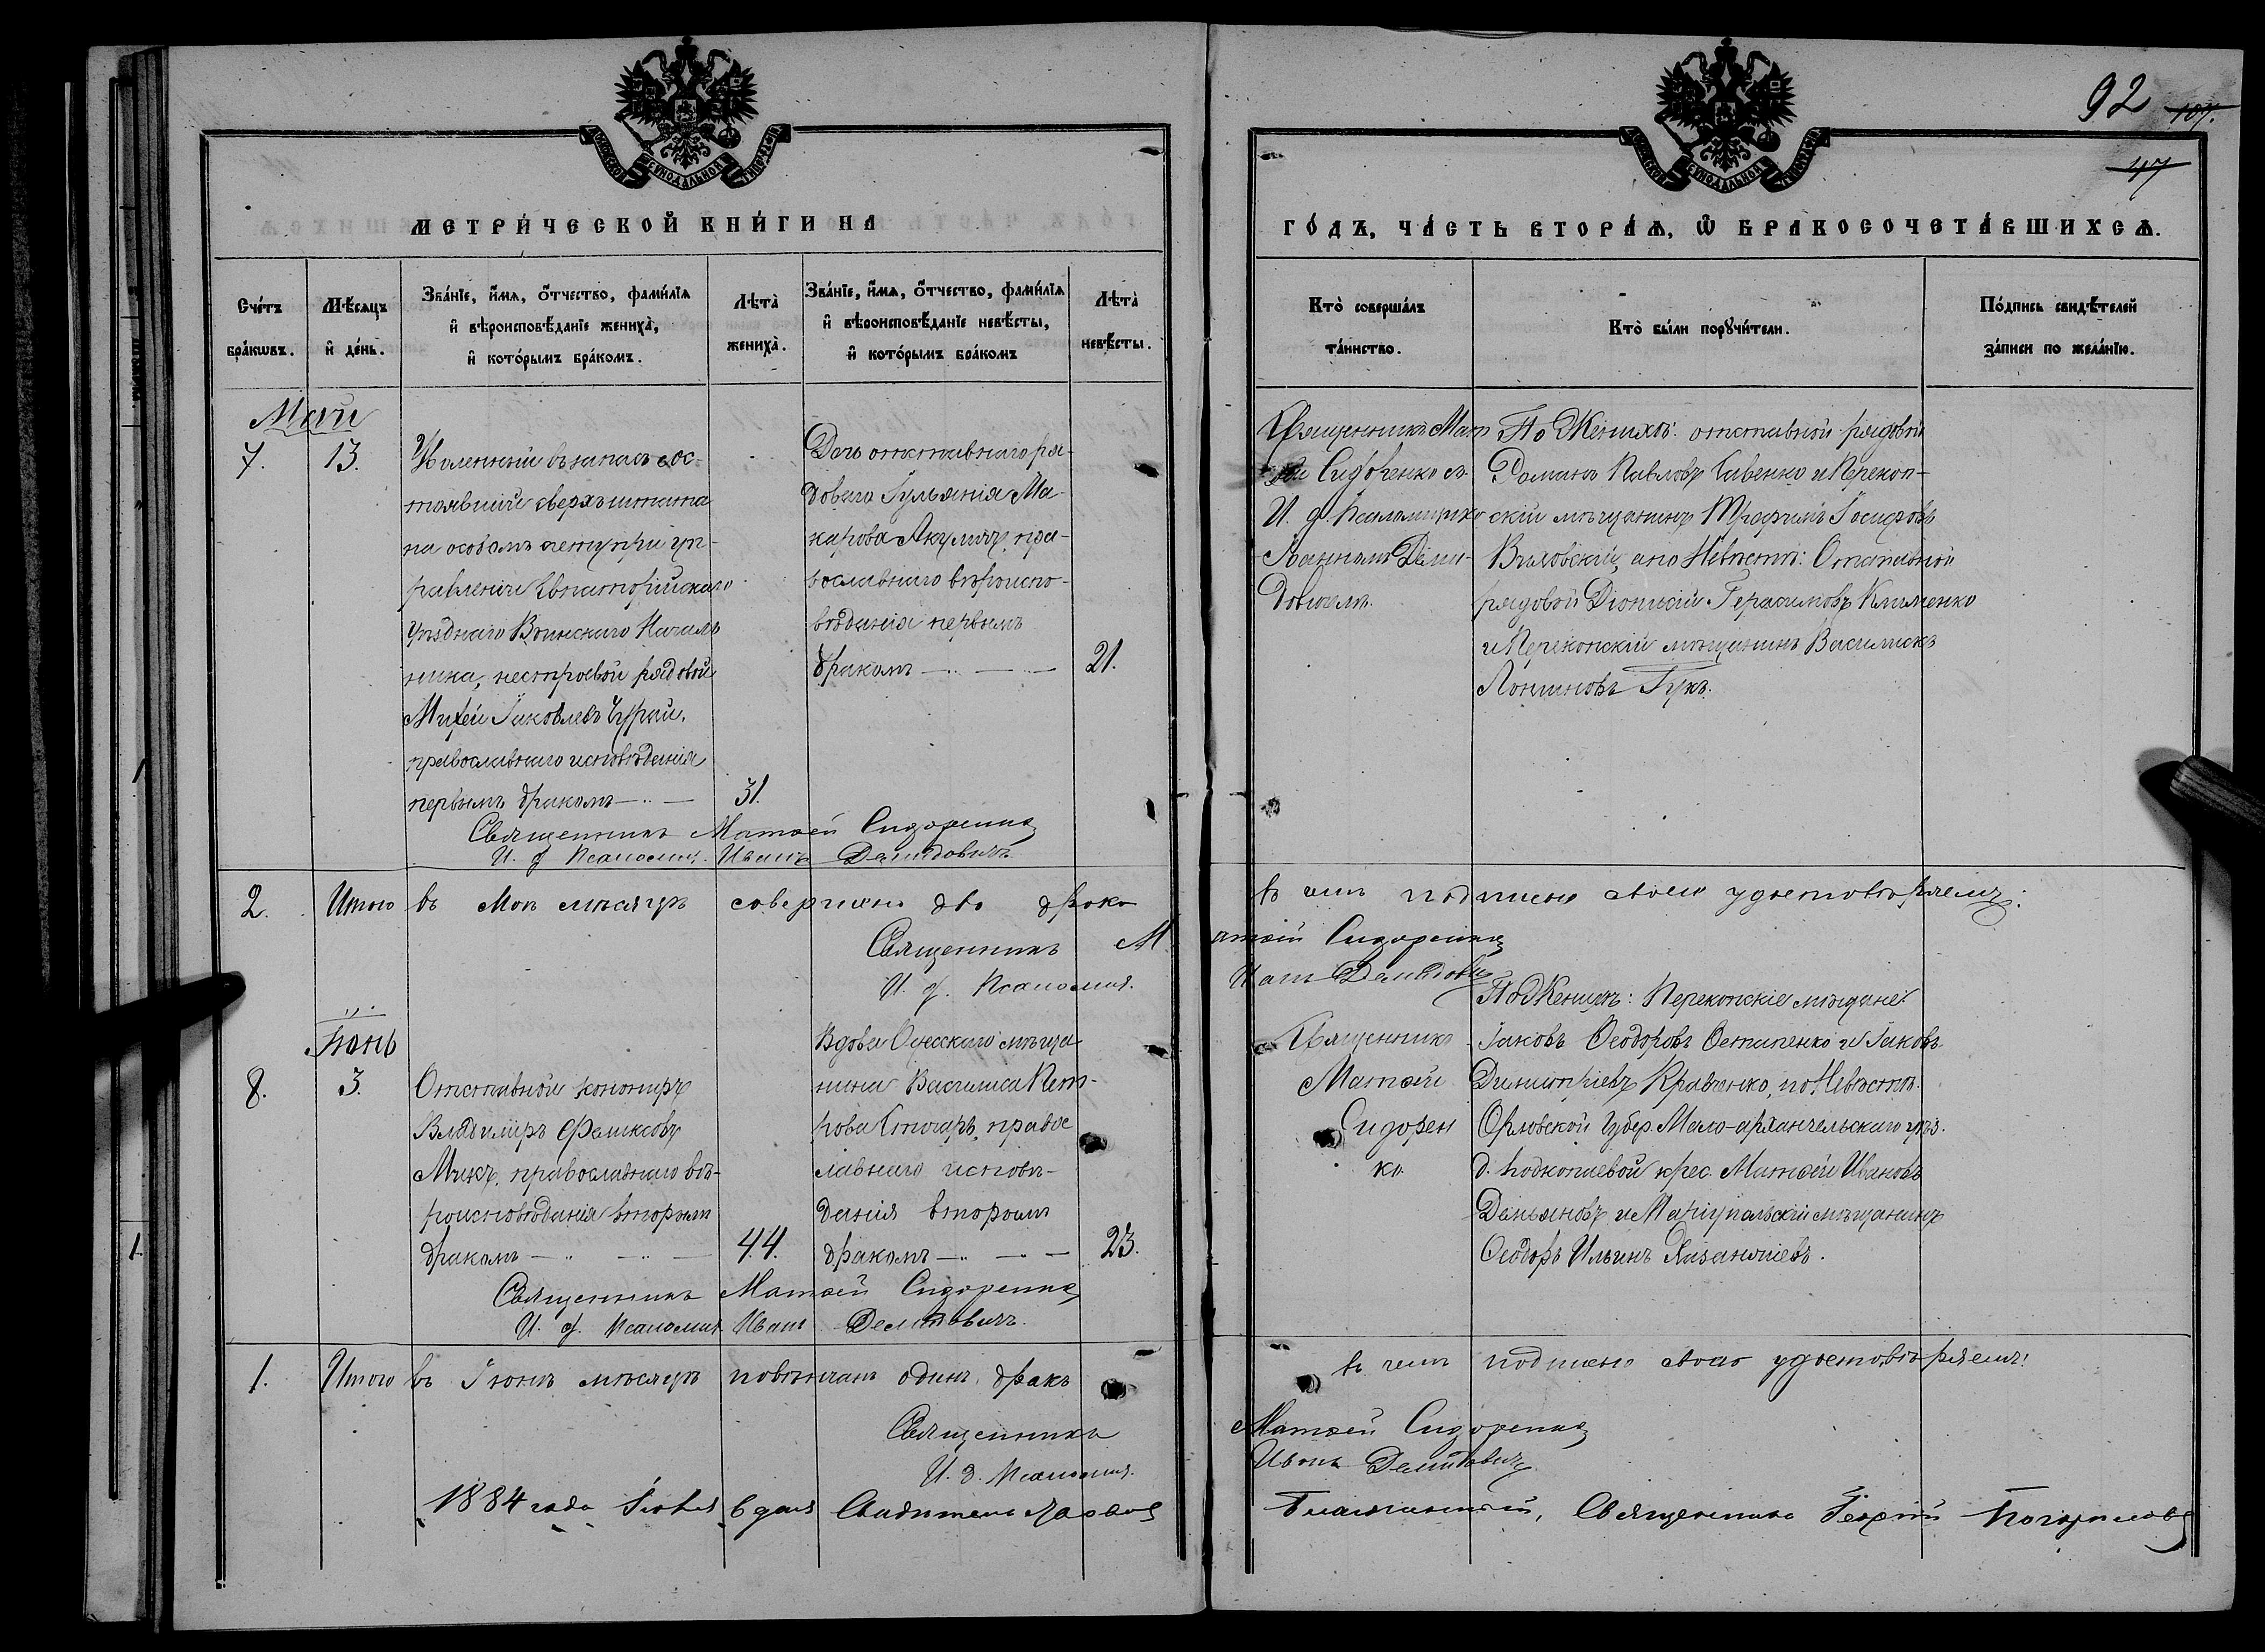 92 107.
47
МЕТРИ́ЧЕСКОЙ КНИ́ГИ НА
ГО́ДЪ, ЧА́СТЬ ВТОРА́Ѧ, Ѽ БРАКОСОЧЕТА́ВШИХСѦ.
Сче́тъ бра́кѡвъ.
Мѣ́сѧцъ и҆ де́нь.
Зва́нїе, и҆́мѧ, ѻ҆́тчество, фами́лїѧ
и҆ вѣроисповѣ́данїе жениха̀,
и҆ кото́рымъ бра́комъ.
Лѣта̀ жениха̀.
Зва́нїе, и҆́мѧ, ѻ҆́тчество, фами́лїѧ
и҆ вѣроисповѣ́данїе невѣ́сты,
и҆ кото́рымъ бра́комъ
Лѣта̀ невѣ́сты.
Кто̀ соверша́лъ та́инство.
Кто̀ бы́ли порꙋчи́тели.
По́дпись свидѣ́телей
за́писи по жела́нїю.
Май
7.
13.
Уволенный въ запасъ сос-
тоявшій сверхъ штата
на особомъ счету при уп-
равленіи Евпаторійскаго
Уѣзднаго Воинскаго Началь
ника, нестроевой рядовой
Михей Іаковлевъ
православнаго исповѣданія
первымъ бракомъ
31.
Дочь отставнаго ря-
доваго Іульянія Ма-
карова пра-
вославнаго вѣроиспо-
вѣданія первымъ
бракомъ
21.
Священникъ Мат
ѳей Сидоренко съ
И. д. Псаломщика
Іоанномъ Деми-
довичемъ.
По Женихѣ: отставной рядовой
Романъ Павловъ Савенко и Перекоп-
скій мѣщанинъ Трофимъ Іосифовъ
а по Невѣстѣ: Отставной
рядовой Діонисій Герасимовъ Клименко
и Перекопскій мѣщанинъ Василискъ
Лонгиновъ Гукъ.
Священникъ Матѳей Сидоренко
И. д. Псаломщ. Иванъ Демидовичъ
2.
Итого въ Маѣ мѣсяцѣ совершено два брака
въ чемъ подписью своею удостовѣряемъ:
Священникъ Матѳей Сидоренко
И. д. Псаломщ. Иванъ Демидовичъ
Іюнь
8.
3.
Отставной канониръ
Владиміръ
православнаго вѣ-
роисповѣданія вторымъ
бракомъ
44.
Вдова Одесскаго мѣща
нина Василиса Пет-
рова правос
лавнаго исповѣ-
данія вторымъ
бракомъ
23.
Священникъ
Матѳей
Сидорен
ко.
По Женихѣ: Перекопскіе мѣщане:
Іаковъ Ѳеодоровъ Остапенко и Іаковъ
Димитріевъ Кравченко, по Невѣстѣ:
Орловской Губер. Мало-архангельскаго уѣз.
д. Подкопаевой крес. Матѳей Ивановъ
Демьяновъ и Маріупольскій мѣщанинъ
Ѳеодоръ Ильинъ
Священникъ Матѳей Сидоренко
И. д. Псаломщ. Иванъ Демидовичъ
1.
Итого въ Іюнѣ мѣсяцѣ повѣнчанъ одинъ бракъ
въ чемъ подписью своею удостовѣряемъ:
Священникъ Матѳей Сидоренко
И. д. Псаломщ. Иванъ Демидовичъ
1884 года 6 дня
Благочинный, Священникъ Георгій